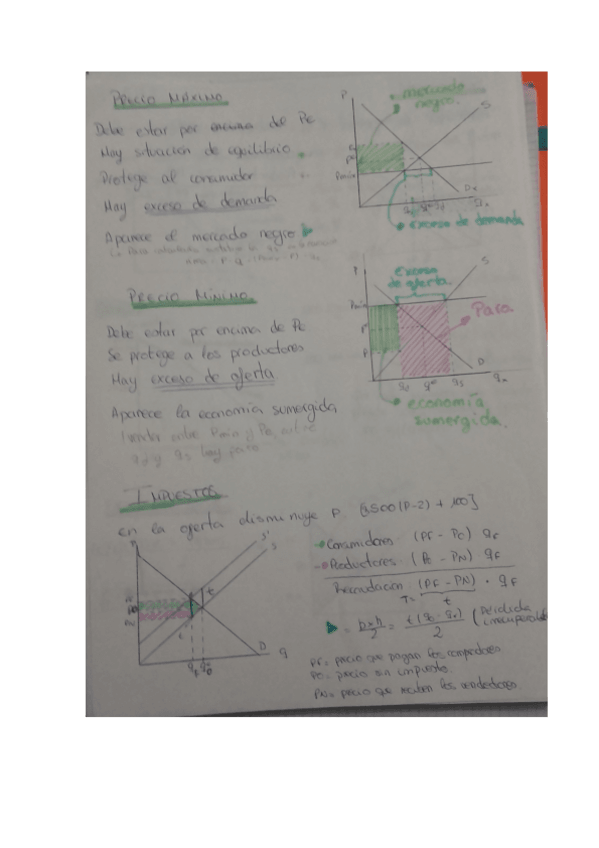 PRECIO MÁXIMO
Debe estar por encima del Pe
Hay situación de equilibrio
Protege al consumidor
Hay exceso de demanda
Aparece el mercado negro
P
mercado negro.
S
Pe
Pmáx
Dx
qx
exceso de demanda
PRECIO MÍNIMO
Debe estar por encima de Pe
Se protege a los productores
Hay exceso de oferta
Aparece la economía sumergida
entre Pmin y Pe, entre
qd y qs hay paro
P
Exceso de oferta
S
Pmín
Paro
D
qd q* qs qx
economía sumergida.
IMPUESTOS
en la oferta disminuye P [1500 (P-2) + 100]
P
S'
S
t
PN
D
q
Consumidores: (PF - PO) qF
Productores: (PO - PN) qF
Recaudación: (PF - PN) · qF
t
= b×h/2 = t (q0 - qF)/2 (Pérdida irrecuperable
PF = precio que pagan los compradores
PO = precio sin impuesto.
PN = precio que reciben los vendedores